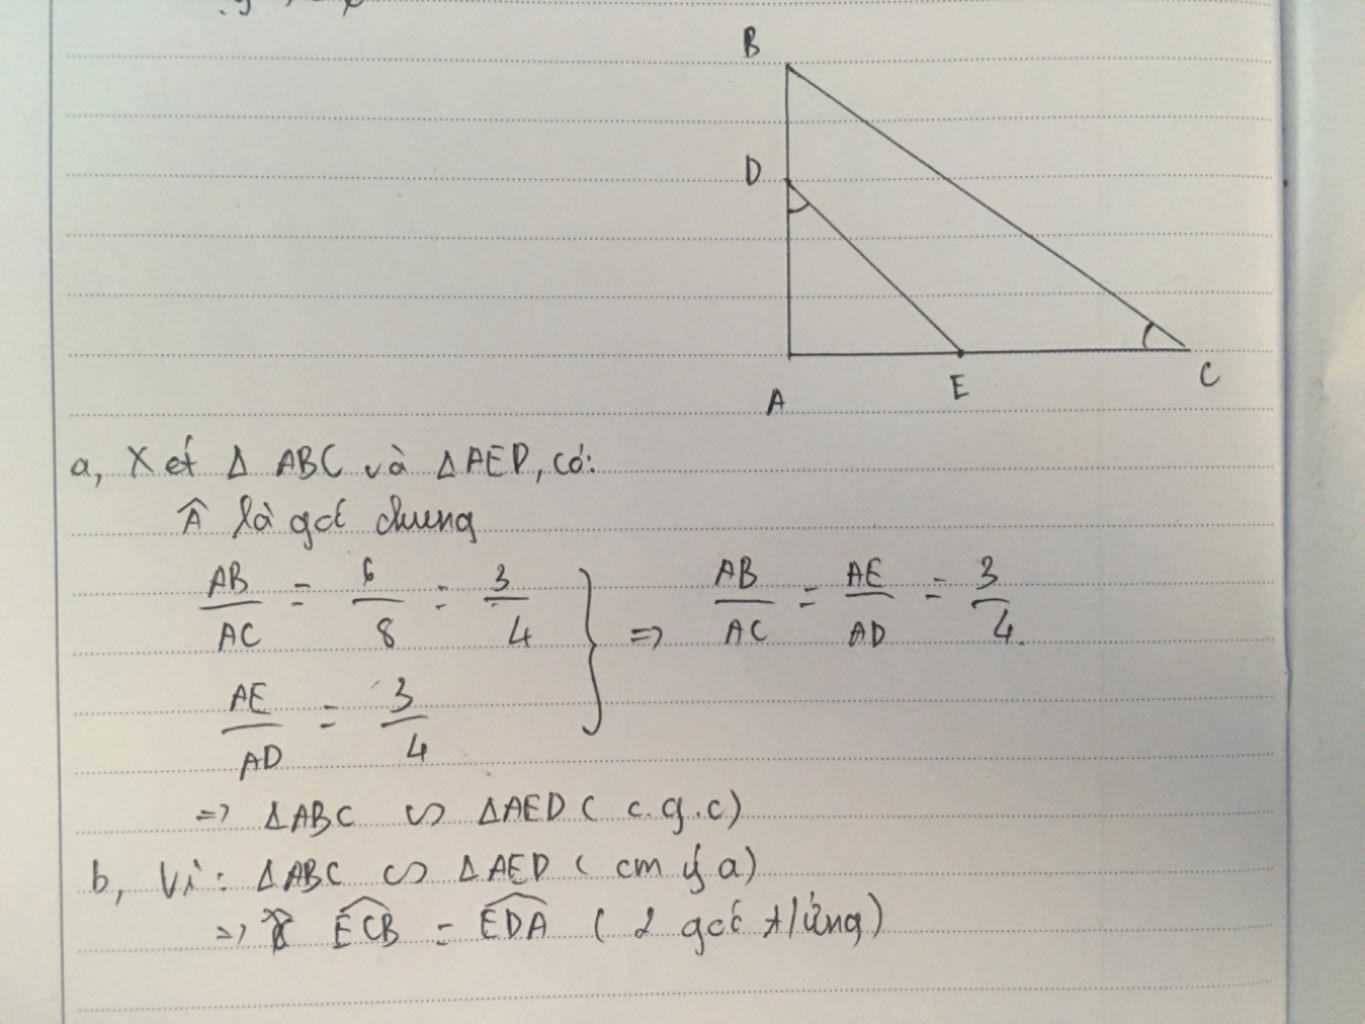 B
D
A
E
C
a, Xét Δ ABC và ΔAED, có:
Â là góc chung
AB/AC = 6/8 = 3/4 } => AB/AC = AE/AD = 3/4.
AE/AD = 3/4
=> ΔABC ∽ ΔAED ( c.g.c)
b, Vì: ΔABC ∽ ΔAED ( cm ý a)
=> \widehat{ECB} = \widehat{EDA} ( 2 góc t/ứng)